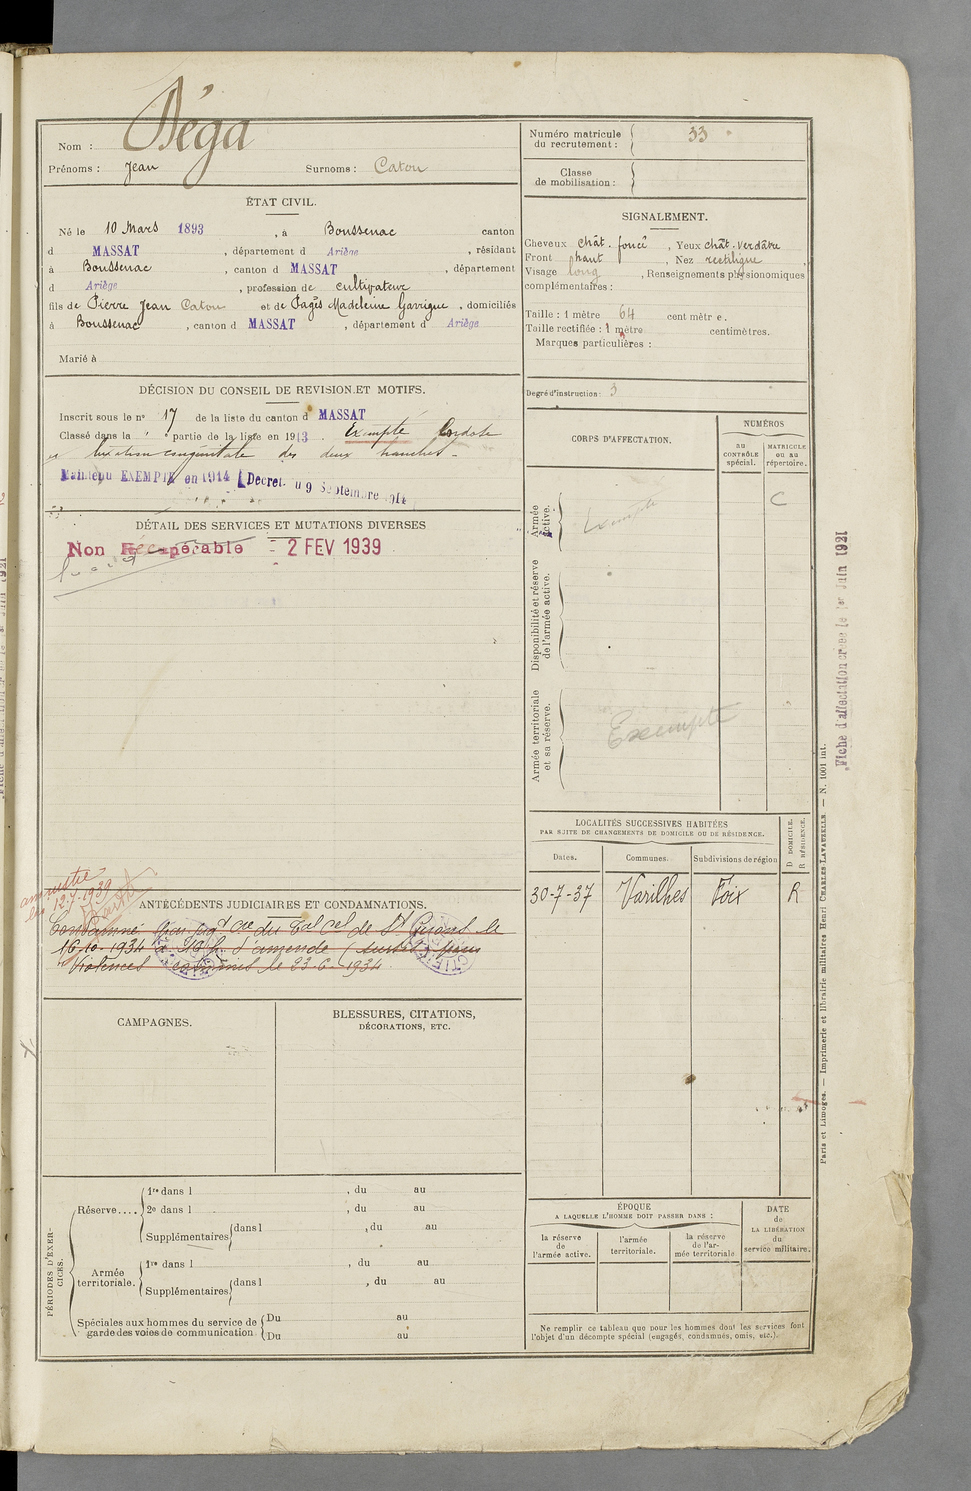 Nom : Déga
Prénoms : Jean Surnoms : Catou
Numéro matricule du recrutement : 33
Classe de mobilisation :
ÉTAT CIVIL.
Né le 10 Mars 1893, à Boussenac canton
d MASSAT, département d Ariège, résidant
à Boussenac, canton d MASSAT, département
d Ariège, profession de cultivateur
fils de Pierre Jean Catou et de Pagès Madeleine Garrigue, domiciliés
à Boussenac, canton d MASSAT, département d Ariège
Marié à
SIGNALEMENT.
Cheveux chât. foncé, Yeux chât. verdâtre
Front haut, Nez rectiligne
Visage long, Renseignements physionomiques
complémentaires :
Taille : 1 mètre 64 centimètre.
Taille rectifiée : 1 mètre centimètres.
Marques particulières :
Degré d'instruction : 3
DÉCISION DU CONSEIL DE REVISION ET MOTIFS.
Inscrit sous le no 17 de la liste du canton d MASSAT
Classé dans la partie de la liste en 1913. Exempté
luxation congénitale des deux hanches
Maintenu EXEMPTÉ en 1914 (Décret du 9 Septembre 1914
DÉTAIL DES SERVICES ET MUTATIONS DIVERSES
Non Récupérable - 2 FEV 1939
CORPS D'AFFECTATION.
NUMÉROS
au CONTRÔLE spécial.
MATRICULE ou au répertoire.
Armée active.
Exempté
C
Disponibilité et réserve de l'armée active.
Armée territoriale et sa réserve.
Exempté
Fiche d'affectation créée le 1er Juin 1921
LOCALITÉS SUCCESSIVES HABITÉES
PAR SUITE DE CHANGEMENTS DE DOMICILE OU DE RÉSIDENCE.
D DOMICILE.
R RÉSIDENCE.
Dates. Communes. Subdivisions de région
30-7-37 Varilhes Foix R
amnistie
12-7-1939
ANTÉCÉDENTS JUDICIAIRES ET CONDAMNATIONS.
Condamné par jugt du Bal Cel de St Girons le
16-10-1934 à d'amende (sursis) pour
Violences commises le 23-6-1934
CAMPAGNES.
BLESSURES, CITATIONS,
DÉCORATIONS, ETC.
PÉRIODES D'EXERCICES.
Réserve....
1re dans l , du au
2e dans l , du au
Supplémentaires dans l , du au
Armée territoriale.
1re dans l , du au
Supplémentaires dans l , du au
Spéciales aux hommes du service de garde des voies de communication
Du au
Du au
ÉPOQUE
A LAQUELLE L'HOMME DOIT PASSER DANS :
la réserve de l'armée active.
l'armée territoriale.
la réserve de l'armée territoriale
DATE de LA LIBÉRATION du service militaire.
Ne remplir ce tableau que pour les hommes dont les services font
l'objet d'un décompte spécial (engagés, condamnés, omis, etc.).
Paris et Limoges. — Imprimerie et librairie militaires Henri CHARLES-LAVAUZELLE — N. 1001 int.